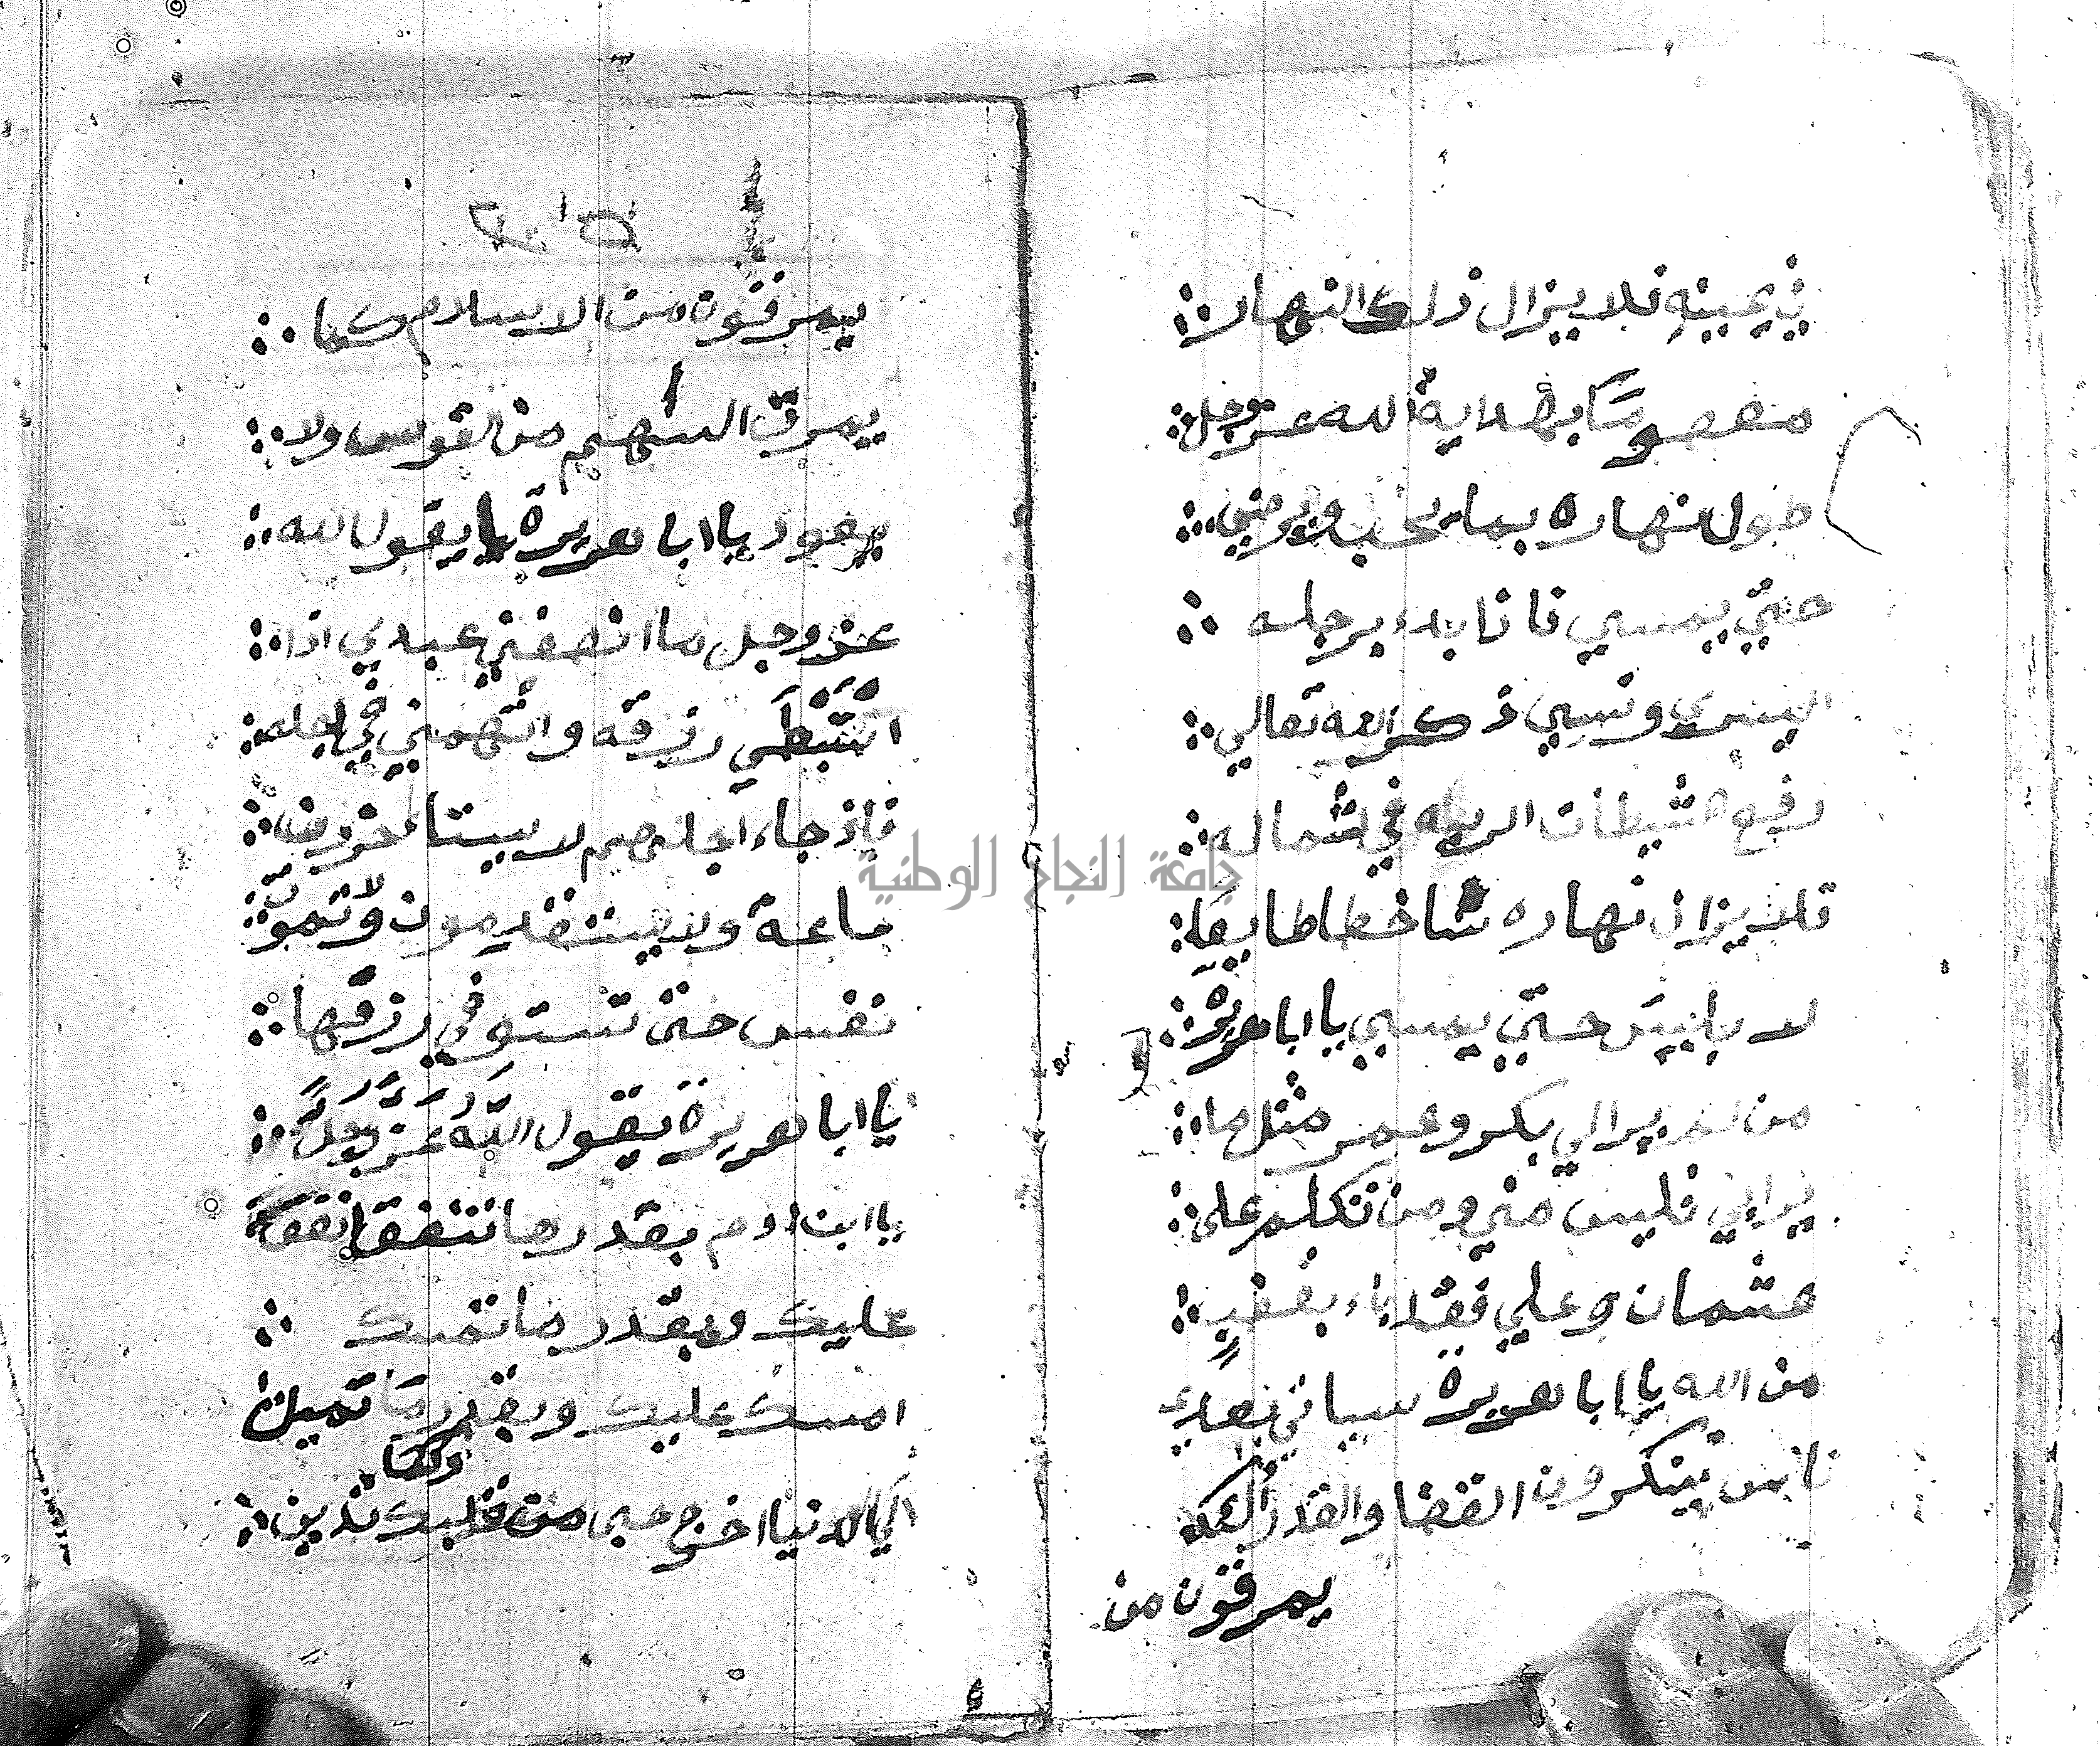 في يمينه فلا يزال ذلك النهار
معصومًا بهداية الله عز وجل
طول نهاره بما يحب ويرضي
حتي يمسي فانا بدء برجله
اليسري ونسي ذكر الله تعالي
رفع الشيطان الرايه في شماله
فلا يزال نهاره ساخطا طايعا
لابليس حتي يمسي يا ابا هريرة
من لم ير الي بكر وعمر مثل ما
يراني فليس مني ومن تكلم على
عثمان وعلي فقد باء بغضبٍ
من الله يا ابا هريرة سياتي بعدي
ناس ينكرون القضا والقدر
يمرقون من
يمرقوة من الاسلام كما
يمرق السهم من القوس ولا
يعود يا ابا هريرة يقول الله
عز وجل ما انصفني عبدي اذا
استبطي رزقه واتهمني في اجله
فاذ جاء اجلهم لا يستاخرون
ساعة ولا يستقدمون ولا تموت
نفس حتى تستوفي رزقها
يا ابا هريرة يقول اللهُ عَزَّ وَجَلَّ
يا ابن ادم بقدر ما تنفق انفق
عليك وبقدر ما تمسك
امسك عليك وبقدر ما تميل
الي الدنيا اخرج حبى من قلبك
جامعة النجاح الوطنية